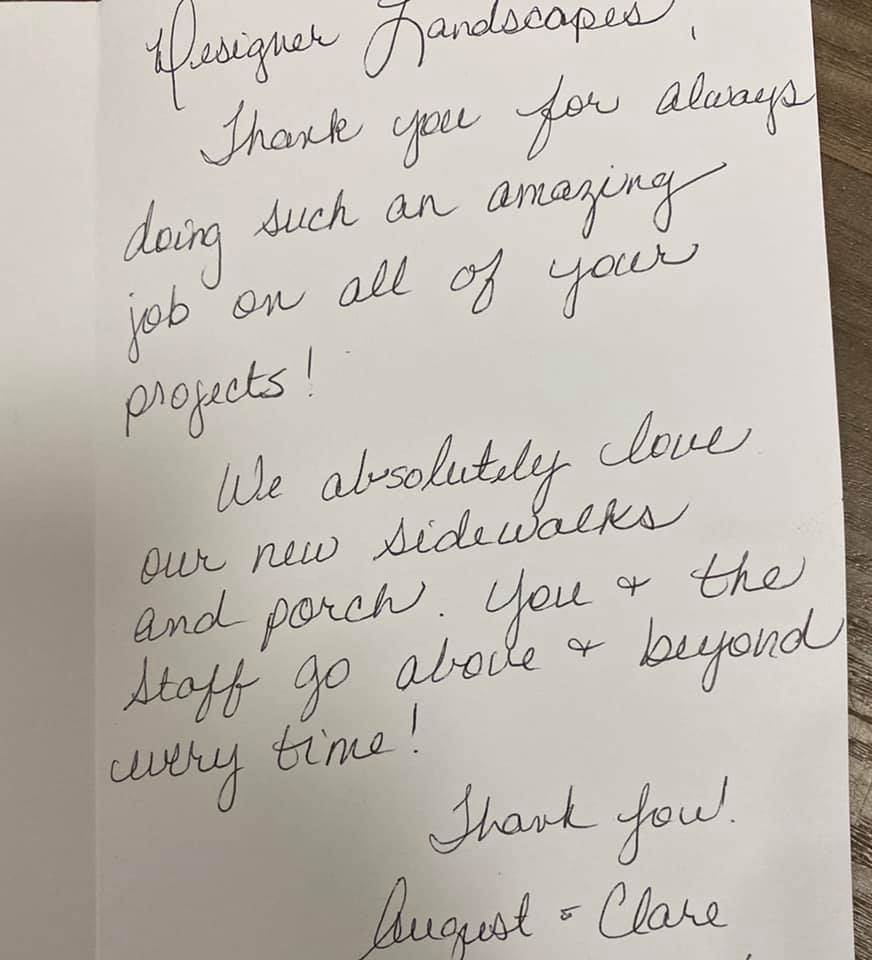 Designer Landscapes,
Thank you for always
doing such an amazing
job on all of your
projects!
We absolutely love
our new sidewalks
and porch. You & the
staff go above & beyond
every time!
Thank you!
August & Clare